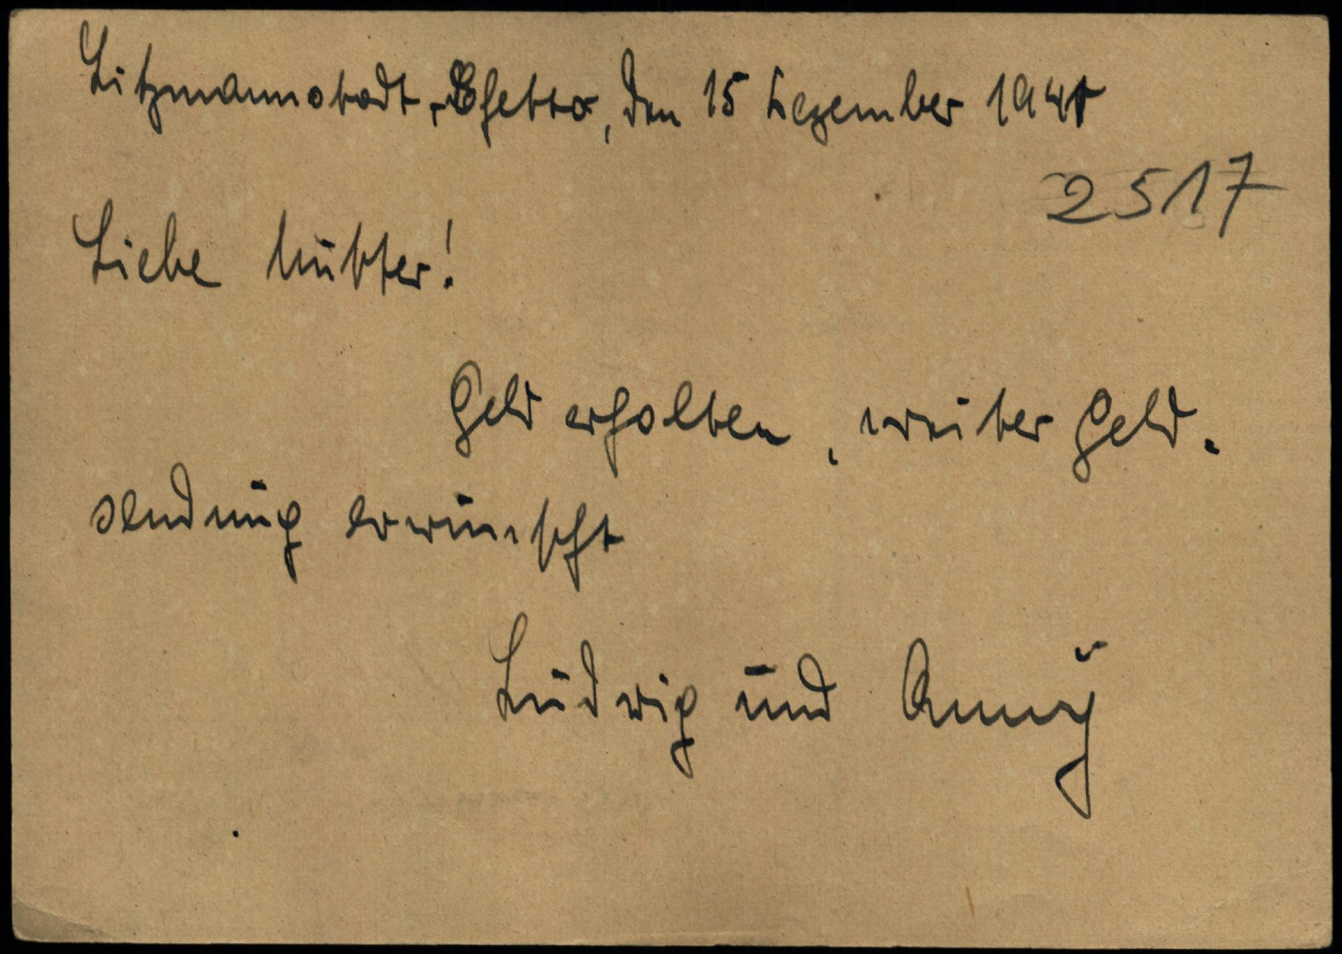 Litzmannstadt-Ghetto, den 15 Dezember 1941
2517
Liebe Mutter!
Geld erhalten, weiter Geld-
sendung erwünscht
Ludwig und Anny